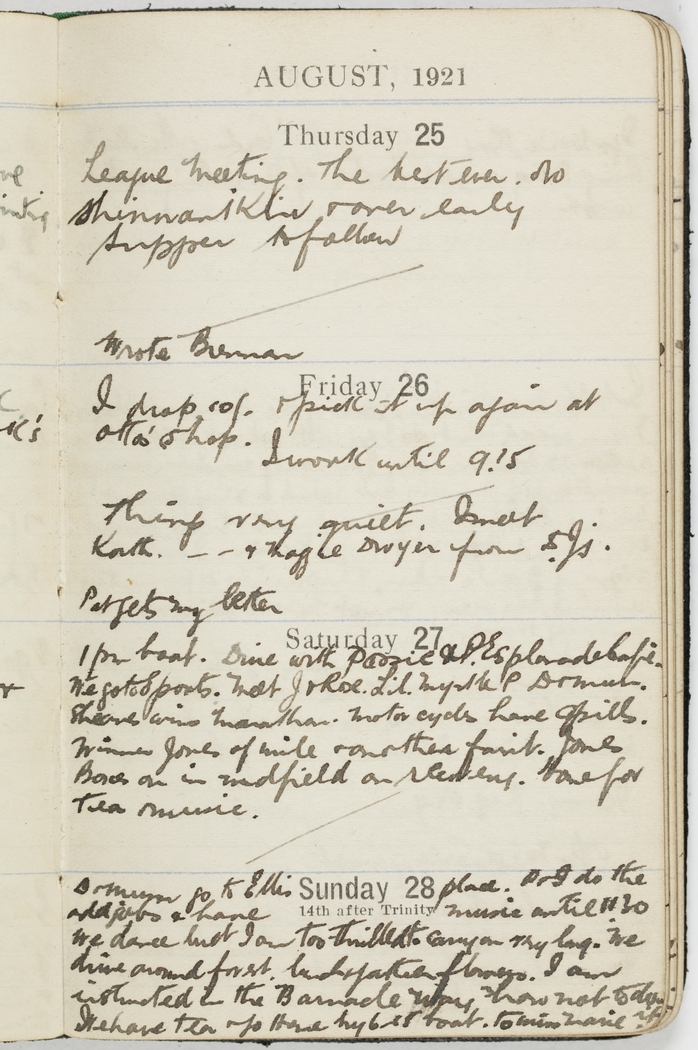 AUGUST, 1921
Thursday 25
League meeting. The best ever. No
over early
supper to follow
Wrote Brennan
Friday 26
I drop 10/. & pick it up again at
shop.
I work until 9.15
Things very quiet. I meet
Kath. - - & Maggie Dwyer from
Pat gets my letter
Saturday 27
1 pm boat. Dine with Possie & P. Esplanade Cafe.
We go to Sports. Meet J & Roe. Lil. Myrtle P D & mum.
wins marathon. Motor cycles have spills.
Winner Jones of mile & another faint. Jones
Boxes on in midfield on . Home for
tea & music.
D & mum go to Ellis place. P & I do the
Sunday 28
14th after Trinity
odd jobs & have music until 11.30
We dance but I am too thrilled to carry on very long. We
drive around forest. flowers. I am
instructed in the Barnacle way "how not to
We have tea & go Home by 6.15 boat.